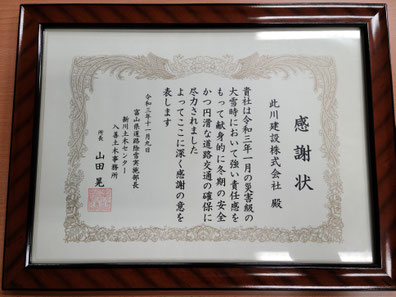 感謝状
此川建設株式会社 殿
貴社は令和三年一月の災害級の
大雪時において強い責任感を
もって献身的に冬期の安全
かつ円滑な道路交通の確保に
尽力されました
よってここに深く感謝の意を
表します
令和三年十一月九日
富山県道路除雪実施部長
新川土木センター
入善土木事務所
所長 山田 晃